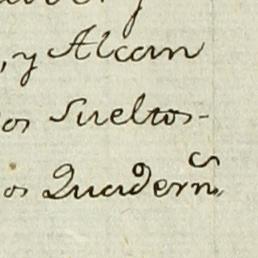 , y Alcan
os Sueltos-
os Quadern.s